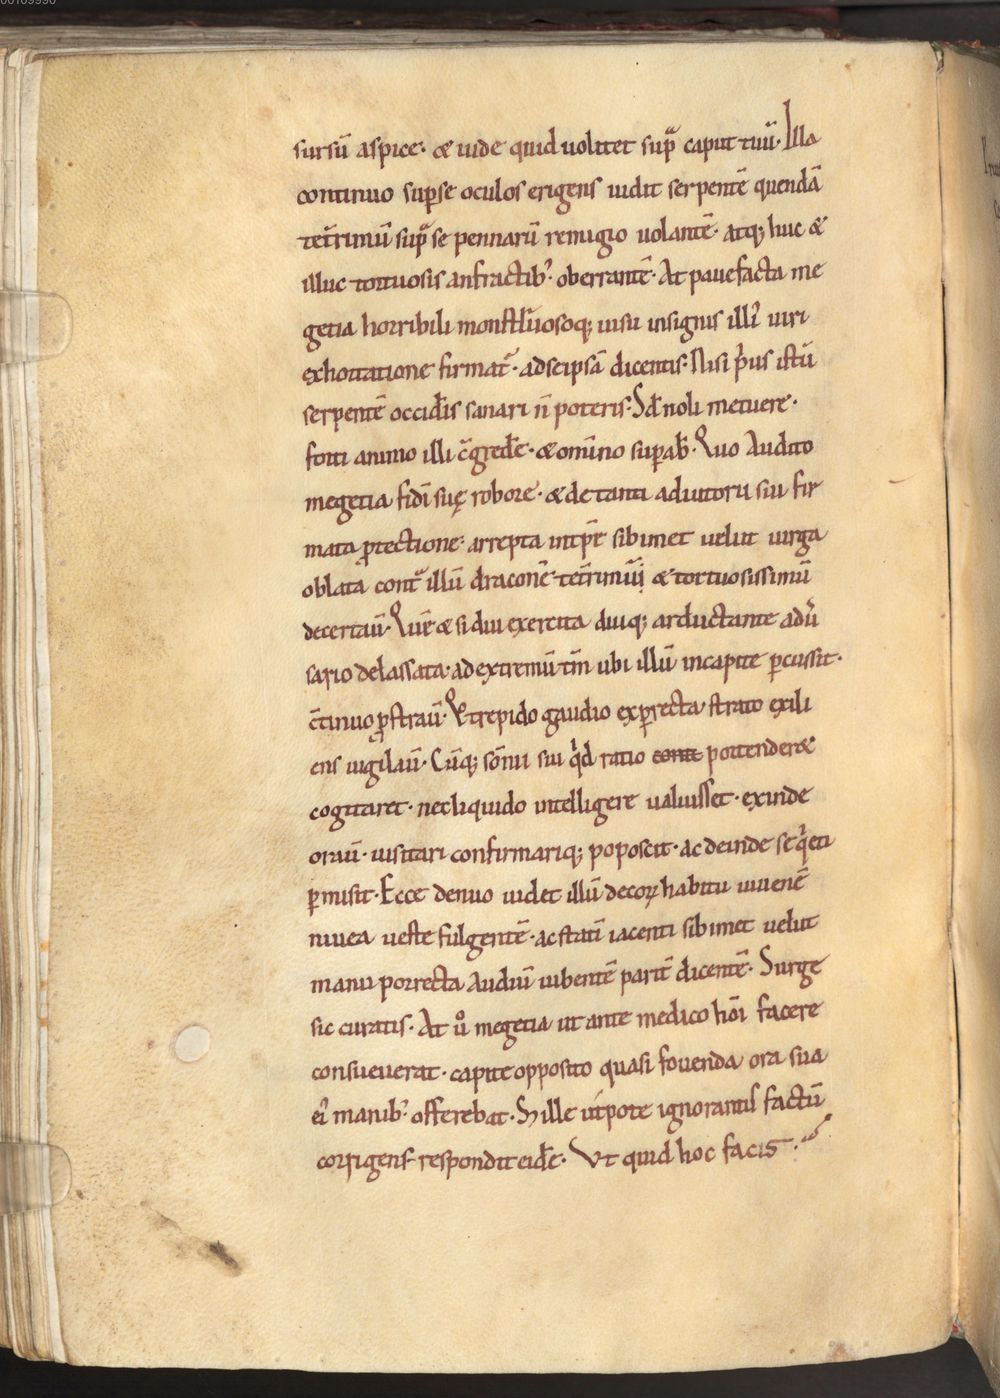 sursū aspice· & uide quid uolitet supᷓ caput tuū· Illa
continuo sup̱se oculos erigens uidit serpentē quendā
tet̄rimū supᷓ se pennarū remigio uolantē· atq; huc &
illuc tortuosis anfractib᾽· oberrantē· At pauefacta me
getia horribili monstruosoq; uisu insignis illi᾽ uiri
exhortatione firmat᾽· adseipsā dicentis· Nisi p̄us istū
serpentē occid̄is sanari n̄ poteris· Sꝺ noli metuere·
forti animo illi c̄gred̄e· & om̄ino sup̱ab᾽· Quo Audito
megetia fidī suę robore· & de tanti adiutorii sui fir
mata ꝓtectione· arrepta int̄pr̄e sibimet uelut uirga
oblata contᷓ illū draconē tet̄rimū & tortuosissimū
decertau᾽· Quē & si diu exercita diuq; arductante adū
sario delassata· ad extremū tm̄ ubi illū incapite p̱cussit·
c̄tinuo ꝓstrau᾽· Et trepido gaudio exp̱recta strato exili
ens uigilau᾽· Cūq; sōnii sui qᷓd ratio conte portenderæ
cogitaret· nec liquido intelligere ualuisset· exinde
orau᾽· uisitari confirmariq; poposcit· ac deinde seq̄eti
p̱misit· Ecce denuo uidet illū decorꝫ habitu iuuenē
niuea ueste fulgentē· ac statī iacenti sibimet uelut
manu porrecta Audiu᾽ iubentē parit̄ dicentē· Surge
sic curatis· At uͦ megetia ut ante medico hōi facere
consueuerat· capite opposito quasi fouenda ora sua
ei᾽ manib᾽ offerebat· Sꝫ ille utpote ignorantis factū
corrigens respondit eid̄e· Ut quid hoc facis·